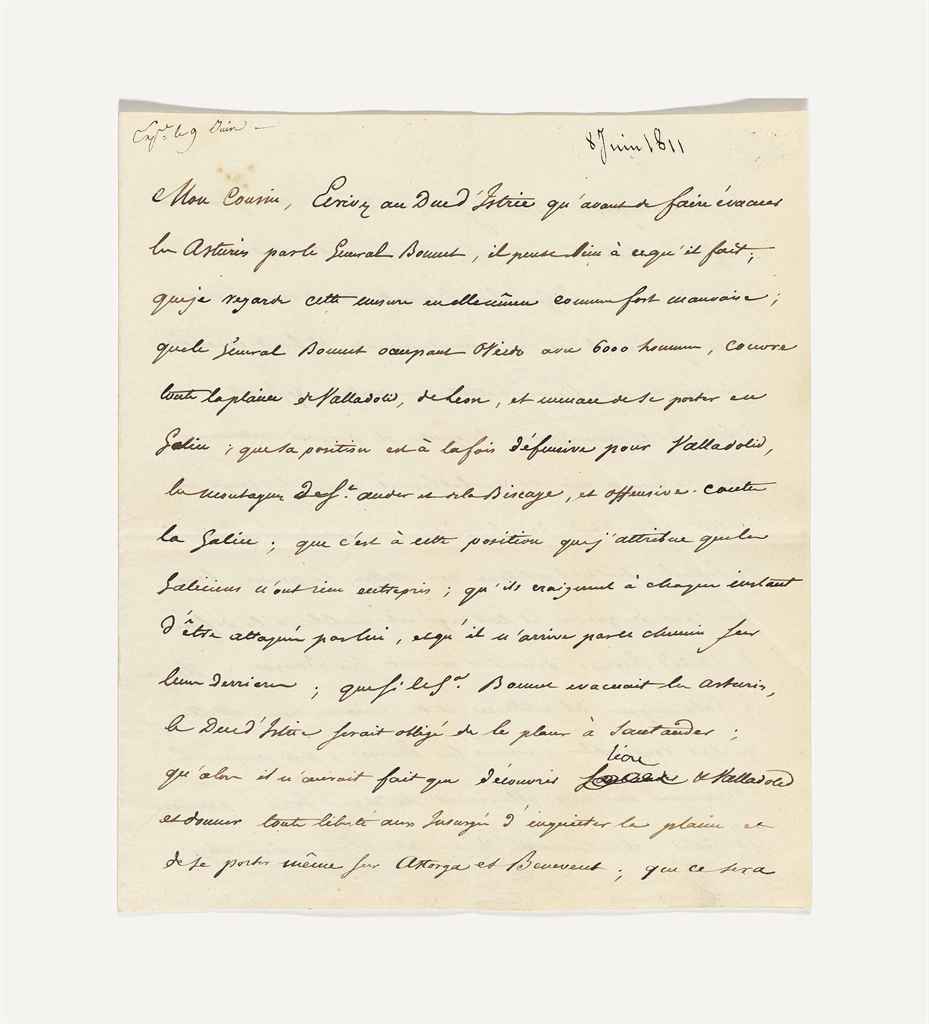 Exp.é le 9 Juin
8 Juin 1811
Mon Cousin, Ecrivez au Duc d'Istrie qu'avant de faire évacuer
les Asturies par le Général Bonnet, il pense bien à ce qu'il fait;
que je regarde cette mesure en elle même comme fort mauvaise;
que le Général Bonnet occupant Oviedo avec 6000 hommes, couvre
toute la plaine de Valladolid, de Leon, et menace de se porter en
Galice; que sa position est à la fois défensive pour Valladolid,
les montagnes de St. ander et de la Biscaye, et offensive contre
la Galice; que c'est à cette position que j'attribue que les
Galiciens n'ont rien entrepris; qu'ils craignent à chaque instant
d'être attaqués par lui, et qu'il n'arrive par ce chemin sur
leurs derrieres; que si le Gal. Bonnet evacuait les asturies,
le Duc d'Istrie serait obligé de le placer à Santander;
qu'alors il n'aurait fait que découvrir léon & Valladolid
et donner toute liberté aux Insurgés d'inquiéter la plaine et
de se porter même sur Astorga et Benevent; que ce sera